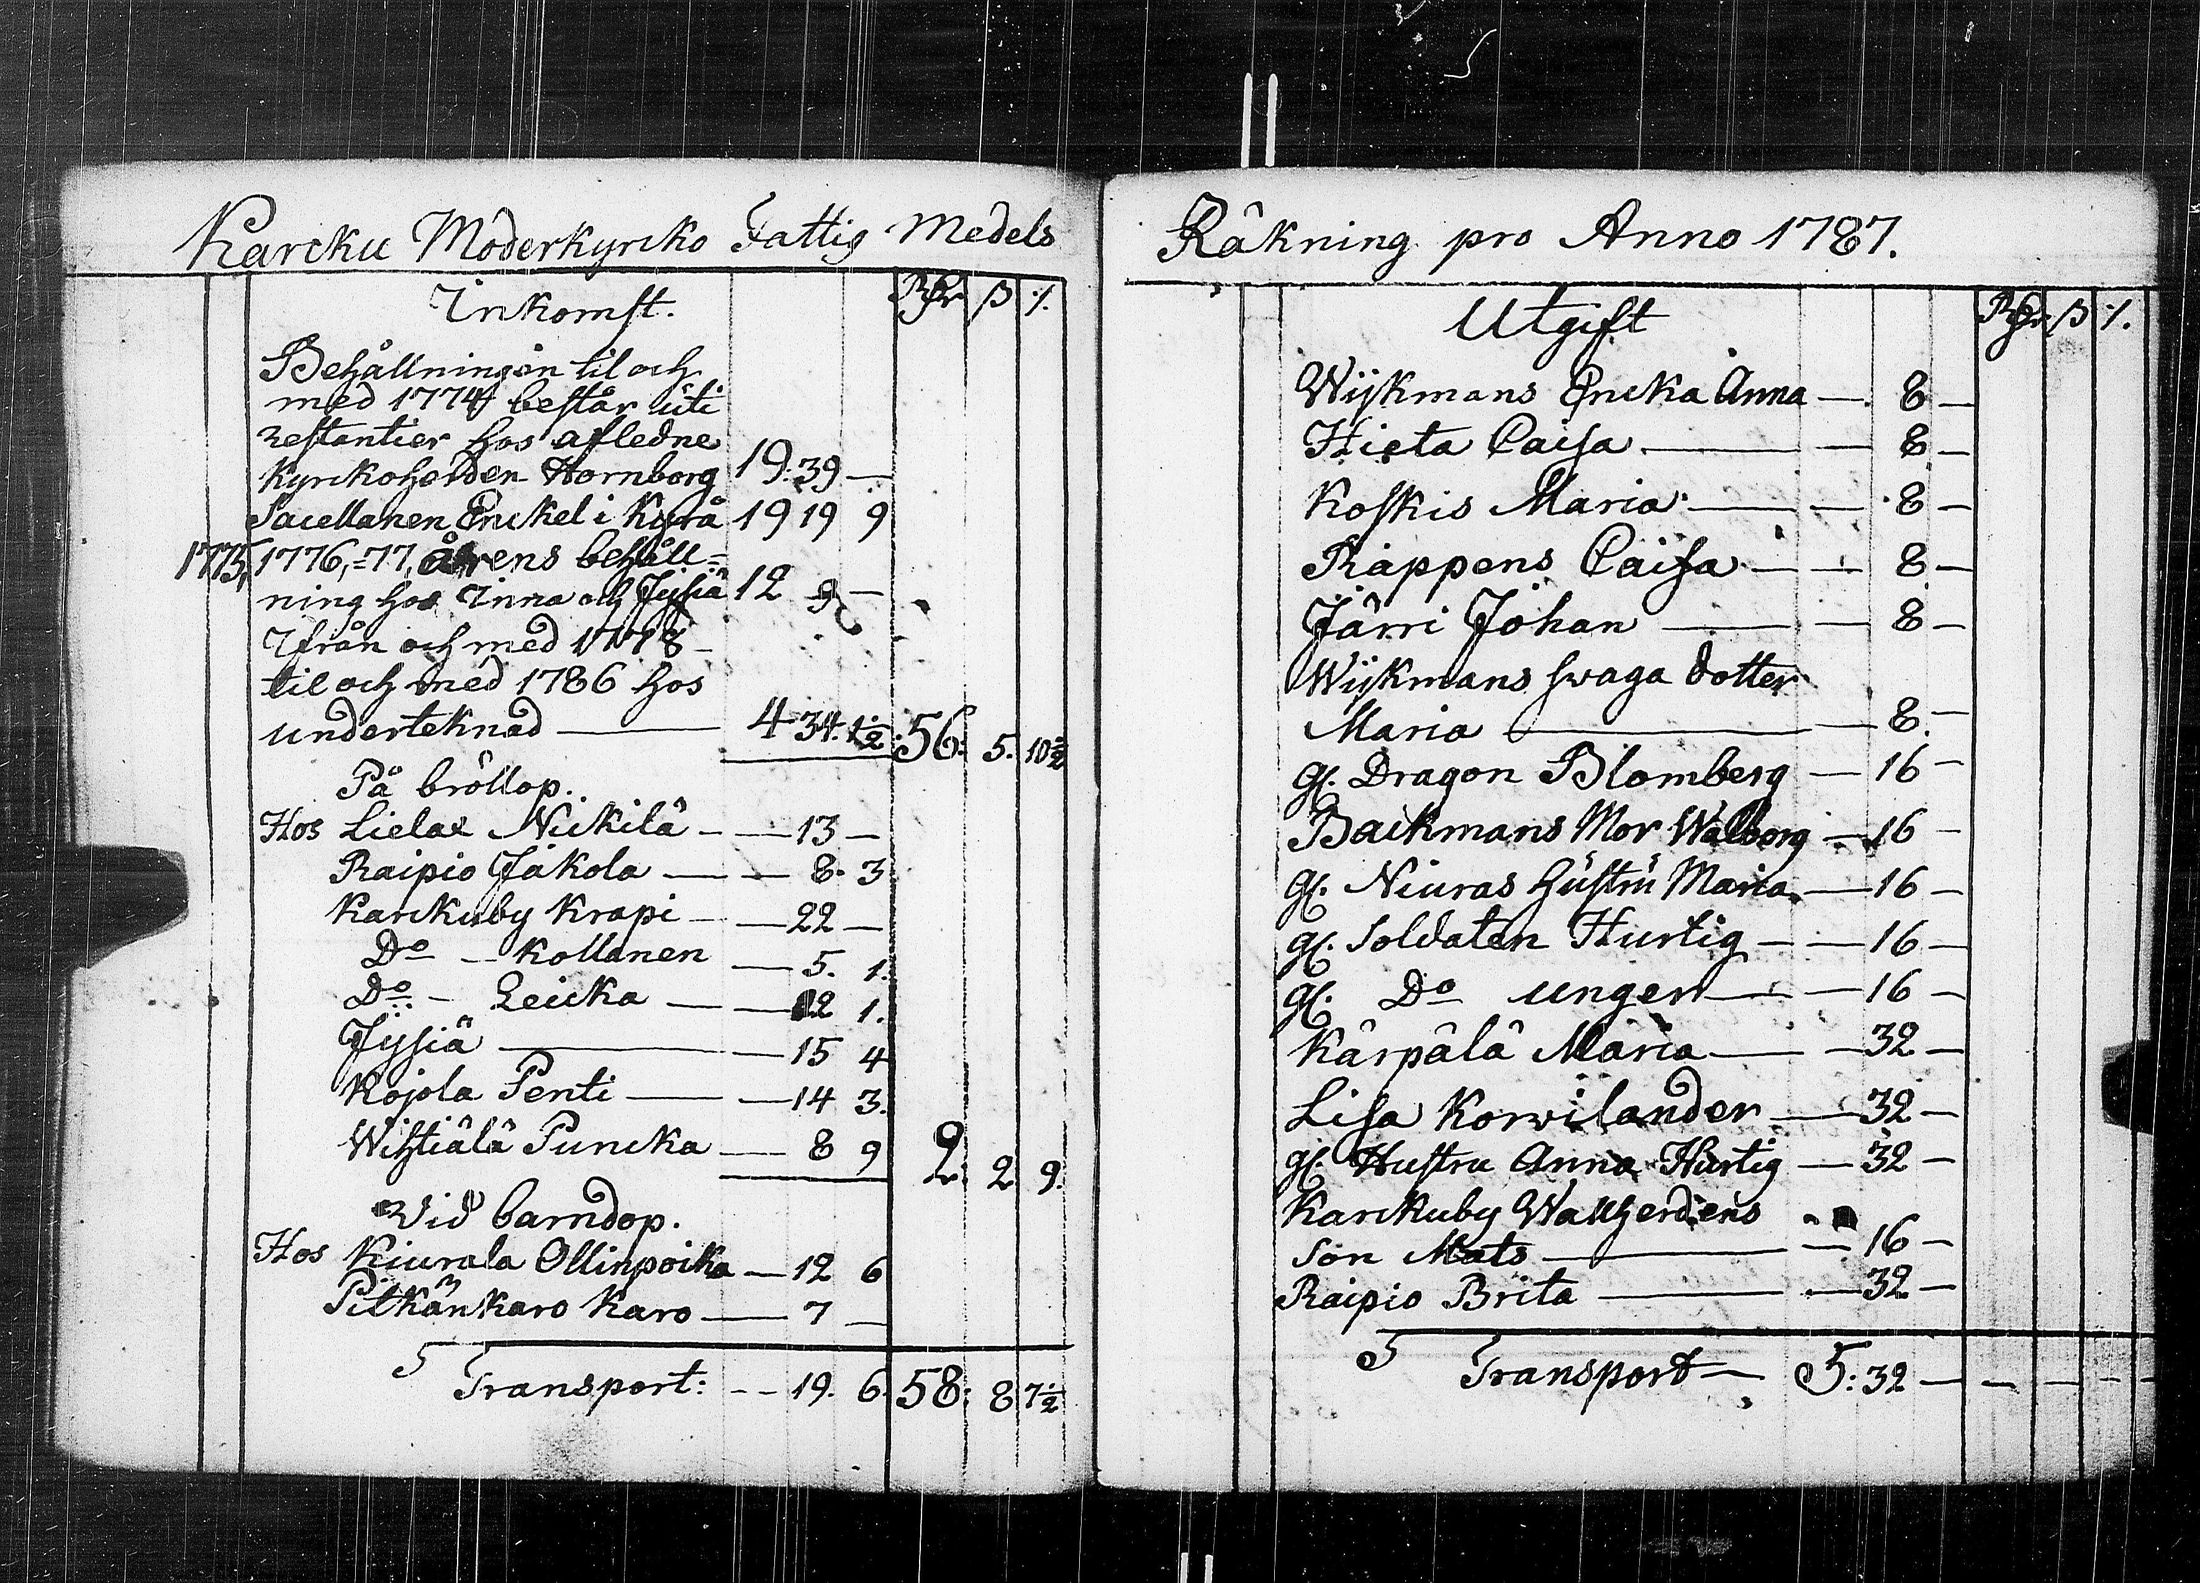 Karcku Moderkyrcko Fattig Medels
Inkomst. Rdr ß /.
Behållningen til och
med 1774 består uti
restantier hos afledne
Kyrckoherden Hornborg 19: 39 —
Sacellanen Enckel i Kyrå 19 19 9
1775, 1776, =77, årens behåll=
ning hos Inna och Jysiä 12 9 —
Ifrån och med 1778
til och med 1786 hos
underteknad — 4 34. 1½ 56: 5. 10½
På bröllop.
Hos Lielax Nickilä — — 13 —
Raipio Jakola — — 8. 3
Karckuby Krapi — — 22 —
Do — Kollanen — 5. 1.
Do — Leicka — 12 1.
Jysiä — — 15 4
Kojola Penti — — 14 3.
Wihtiälä Puncka — 8 9 2. 2 9.
Vid barndop.
Hos Kiurala Ollinpoika — 12 6
Pitkänkaro Karo — 7 —
Transport: — — 19. 6. 58: 8 7½
Räkning pro Anno 1787.
Utgift Rdr ß /.
Wijkmans Encka Anna — 8 —
Hieta Caisa — — 8 —
Koskis Maria — — 8 —
Rappens Caisa — — 8 —
Järri Johan — — 8 —
Wijkmans swaga dotter
Maria — — 8 —
gl. Dragon Blomberg — 16 —
Backmans Mor Walborg — 16 —
gl. Niuras Hustru Maria — 16 —
gl. Soldaten Hurtig — — 16 —
gl. Do Unger — — 16 —
Kärpälä Maria — — 32 —
Lisa Korvilander — 32 —
gl. Hustru Anna Hurtig — 32 —
Karckuby Wallherdens
Son Mats — — 16 —
Raipio Brita — — 32 —
Transport — 5: 32 — — — — —